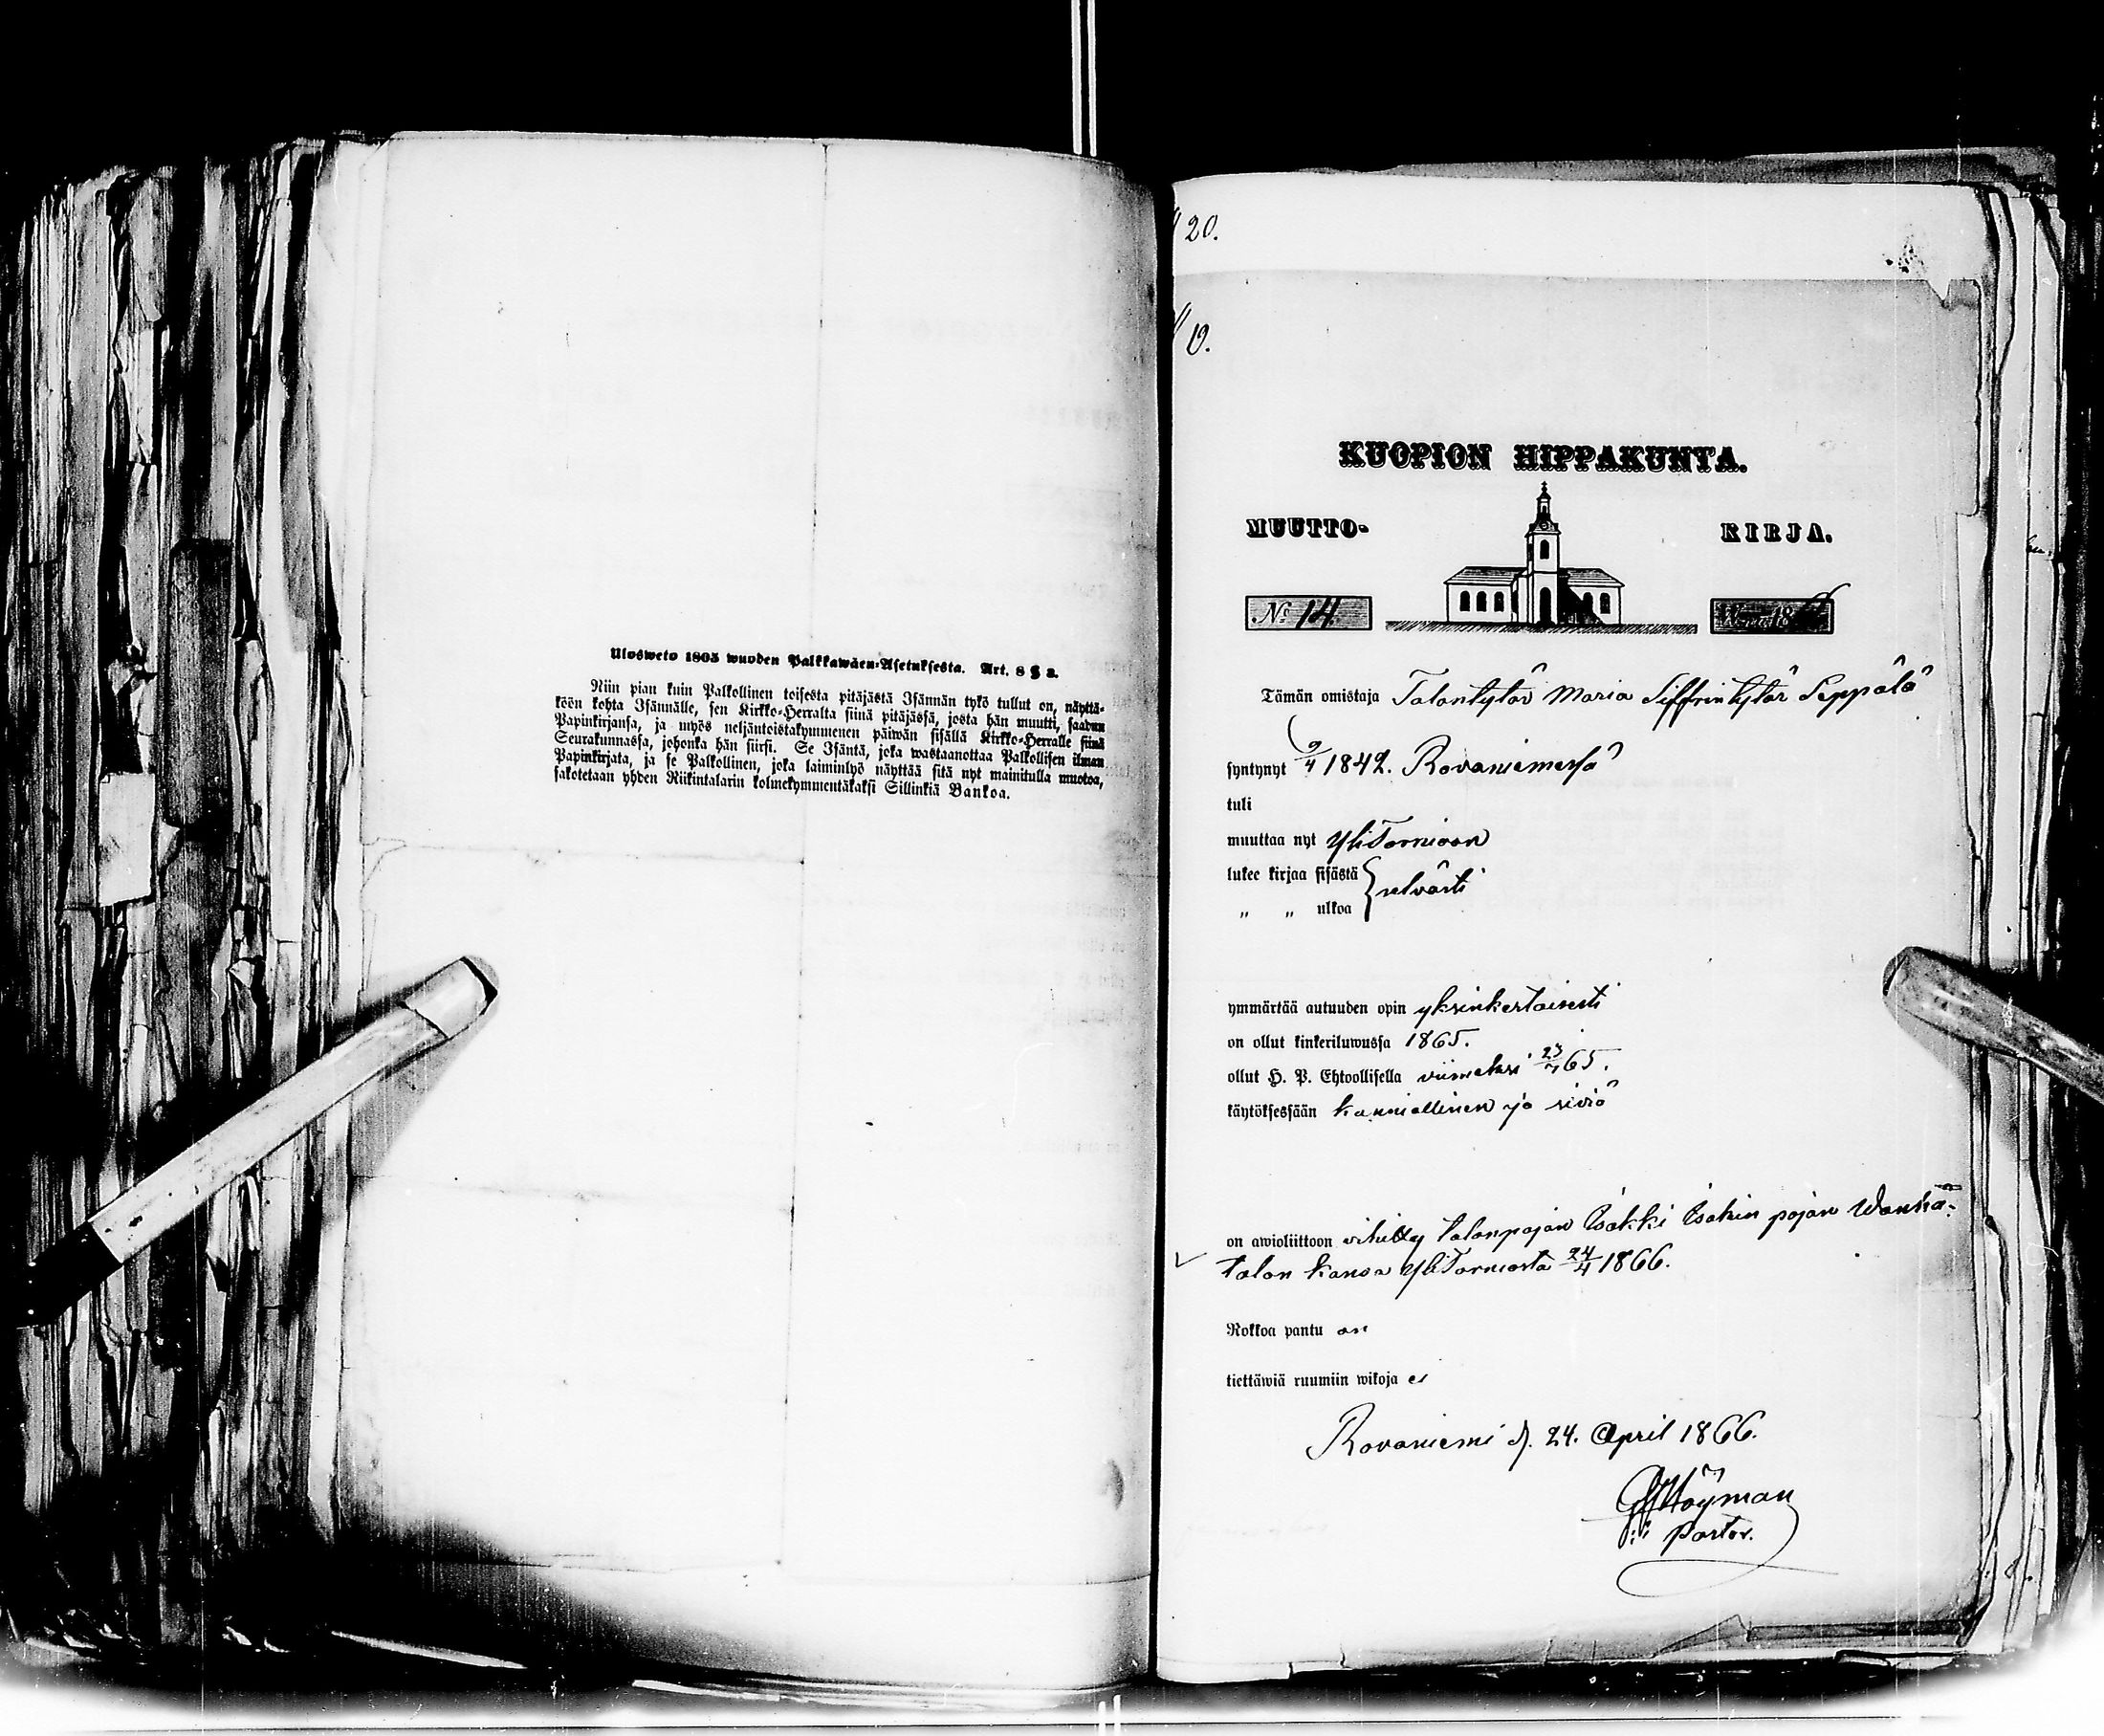 Ulosweto 1805 wuoden Palkkawäen-Asetuksesta. Art. 8 § 2.
Niin pian kuin Palkollinen toisesta pitäjästä Isännän tykö tullut on, näyttä-
köön kohta Isännälle, sen Kirkko-Herralta siinä pitäjässä, josta hän muutti, saadun
Papinkirjansa, ja myös neljäntoistakymmenen päiwän sisällä Kirkko-Herralle siinä
Seurakunnassa, johonka hän siirsi. Se Isäntä, joka wastaanottaa Palkollisen ilman
Papinkirjata, ja se Palkollinen, joka laiminlyö näyttää sitä nyt mainitulla muotoa,
sakotetaan yhden Riikintalarin kolmekymmentäkaksi Sillinkiä Bankoa.
20.
KUOPION HIPPAKUNTA.
MUUTTO- KIRJA.
No 14. Wuonna 1866
Tämän omistaja Talontytär Maria Siffrintytär Seppälä
syntynyt 9/4 1842. Rovaniemessä
tuli
muuttaa nyt YliTornioon
lukee kirjaa sisästä } selvästi
„ „ ulkoa
ymmärtää autuuden opin yksinkertaisesti
on ollut kinkeriluwussa 1865.
ollut H. P. Ehtoollisella viimeksi 23/7 65.
käytöksessään kunniallinen ja siviä
on awioliittoon vihitty talonpojan Isakki Isakin pojan Wanha-
talon kansa YliTorniosta 24/4 1866.
Rokkoa pantu on
tiettäwiä ruumiin wikoja ei
Rovaniemi d. 24. April 1866.
Höyman
Pastor.